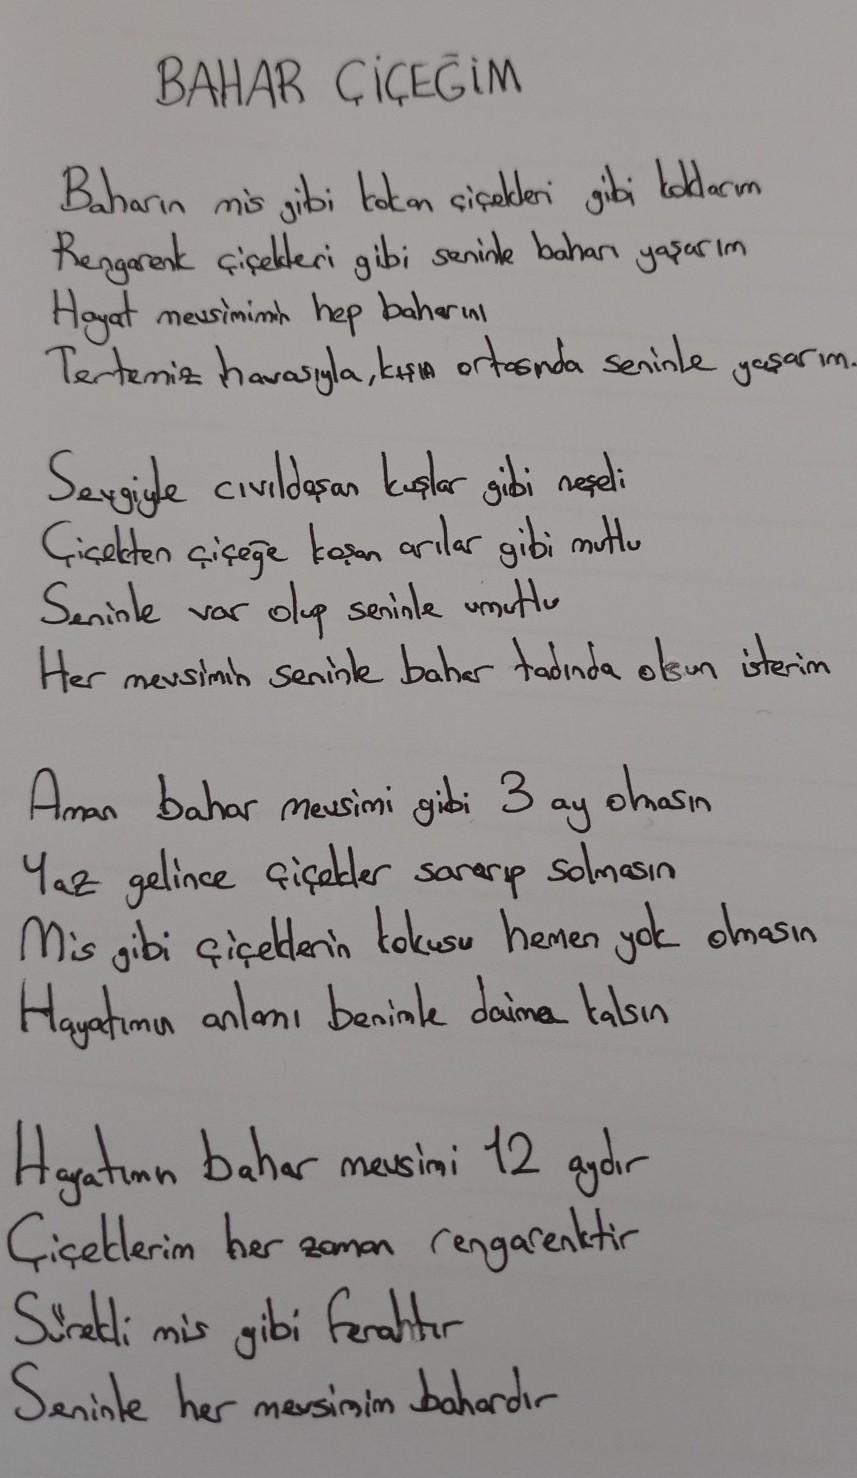 BAHAR ÇİÇEĞİM
Baharın mis gibi kokan çiçekleri gibi koklarım
Rengarenk çiçekleri gibi seninle baharı yaşarım
Hayat mevsimimin hep baharını
Tertemiz havasıyla, kışın ortasında seninle yaşarım.
Sevgiyle cıvıldaşan kuşlar gibi neşeli
Çiçekten çiçeğe koşan arılar gibi mutlu
Seninle var olup seninle umutlu
Her mevsimin seninle bahar tadında olsun isterim
Aman bahar mevsimi gibi 3 ay olmasın
Yaz gelince çiçekler sararıp solmasın
Mis gibi çiçeklerin kokusu hemen yok olmasın
Hayatımın anlamı benimle daima kalsın
Hayatımın bahar mevsimi 12 aydır
Çiçeklerim her zaman rengarenktir
Sürekli mis gibi ferahtır
Seninle her mevsimim bahardır